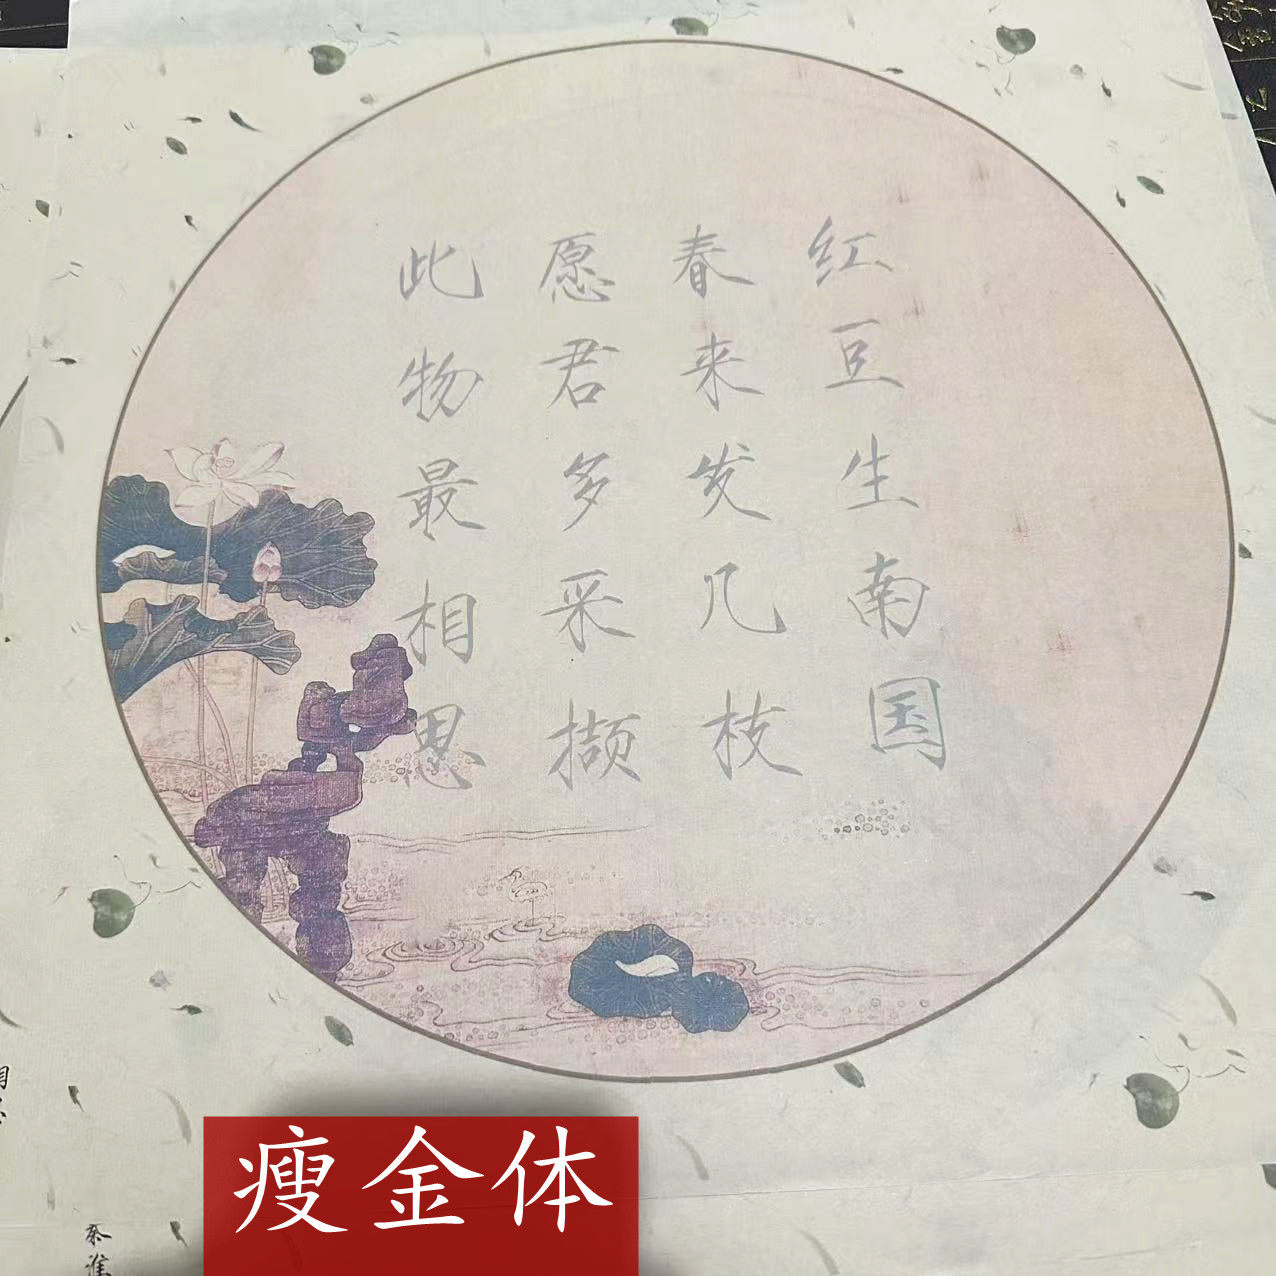 红豆生南国
春来发几枝
愿君多采撷
此物最相思
瘦金体
秦淮